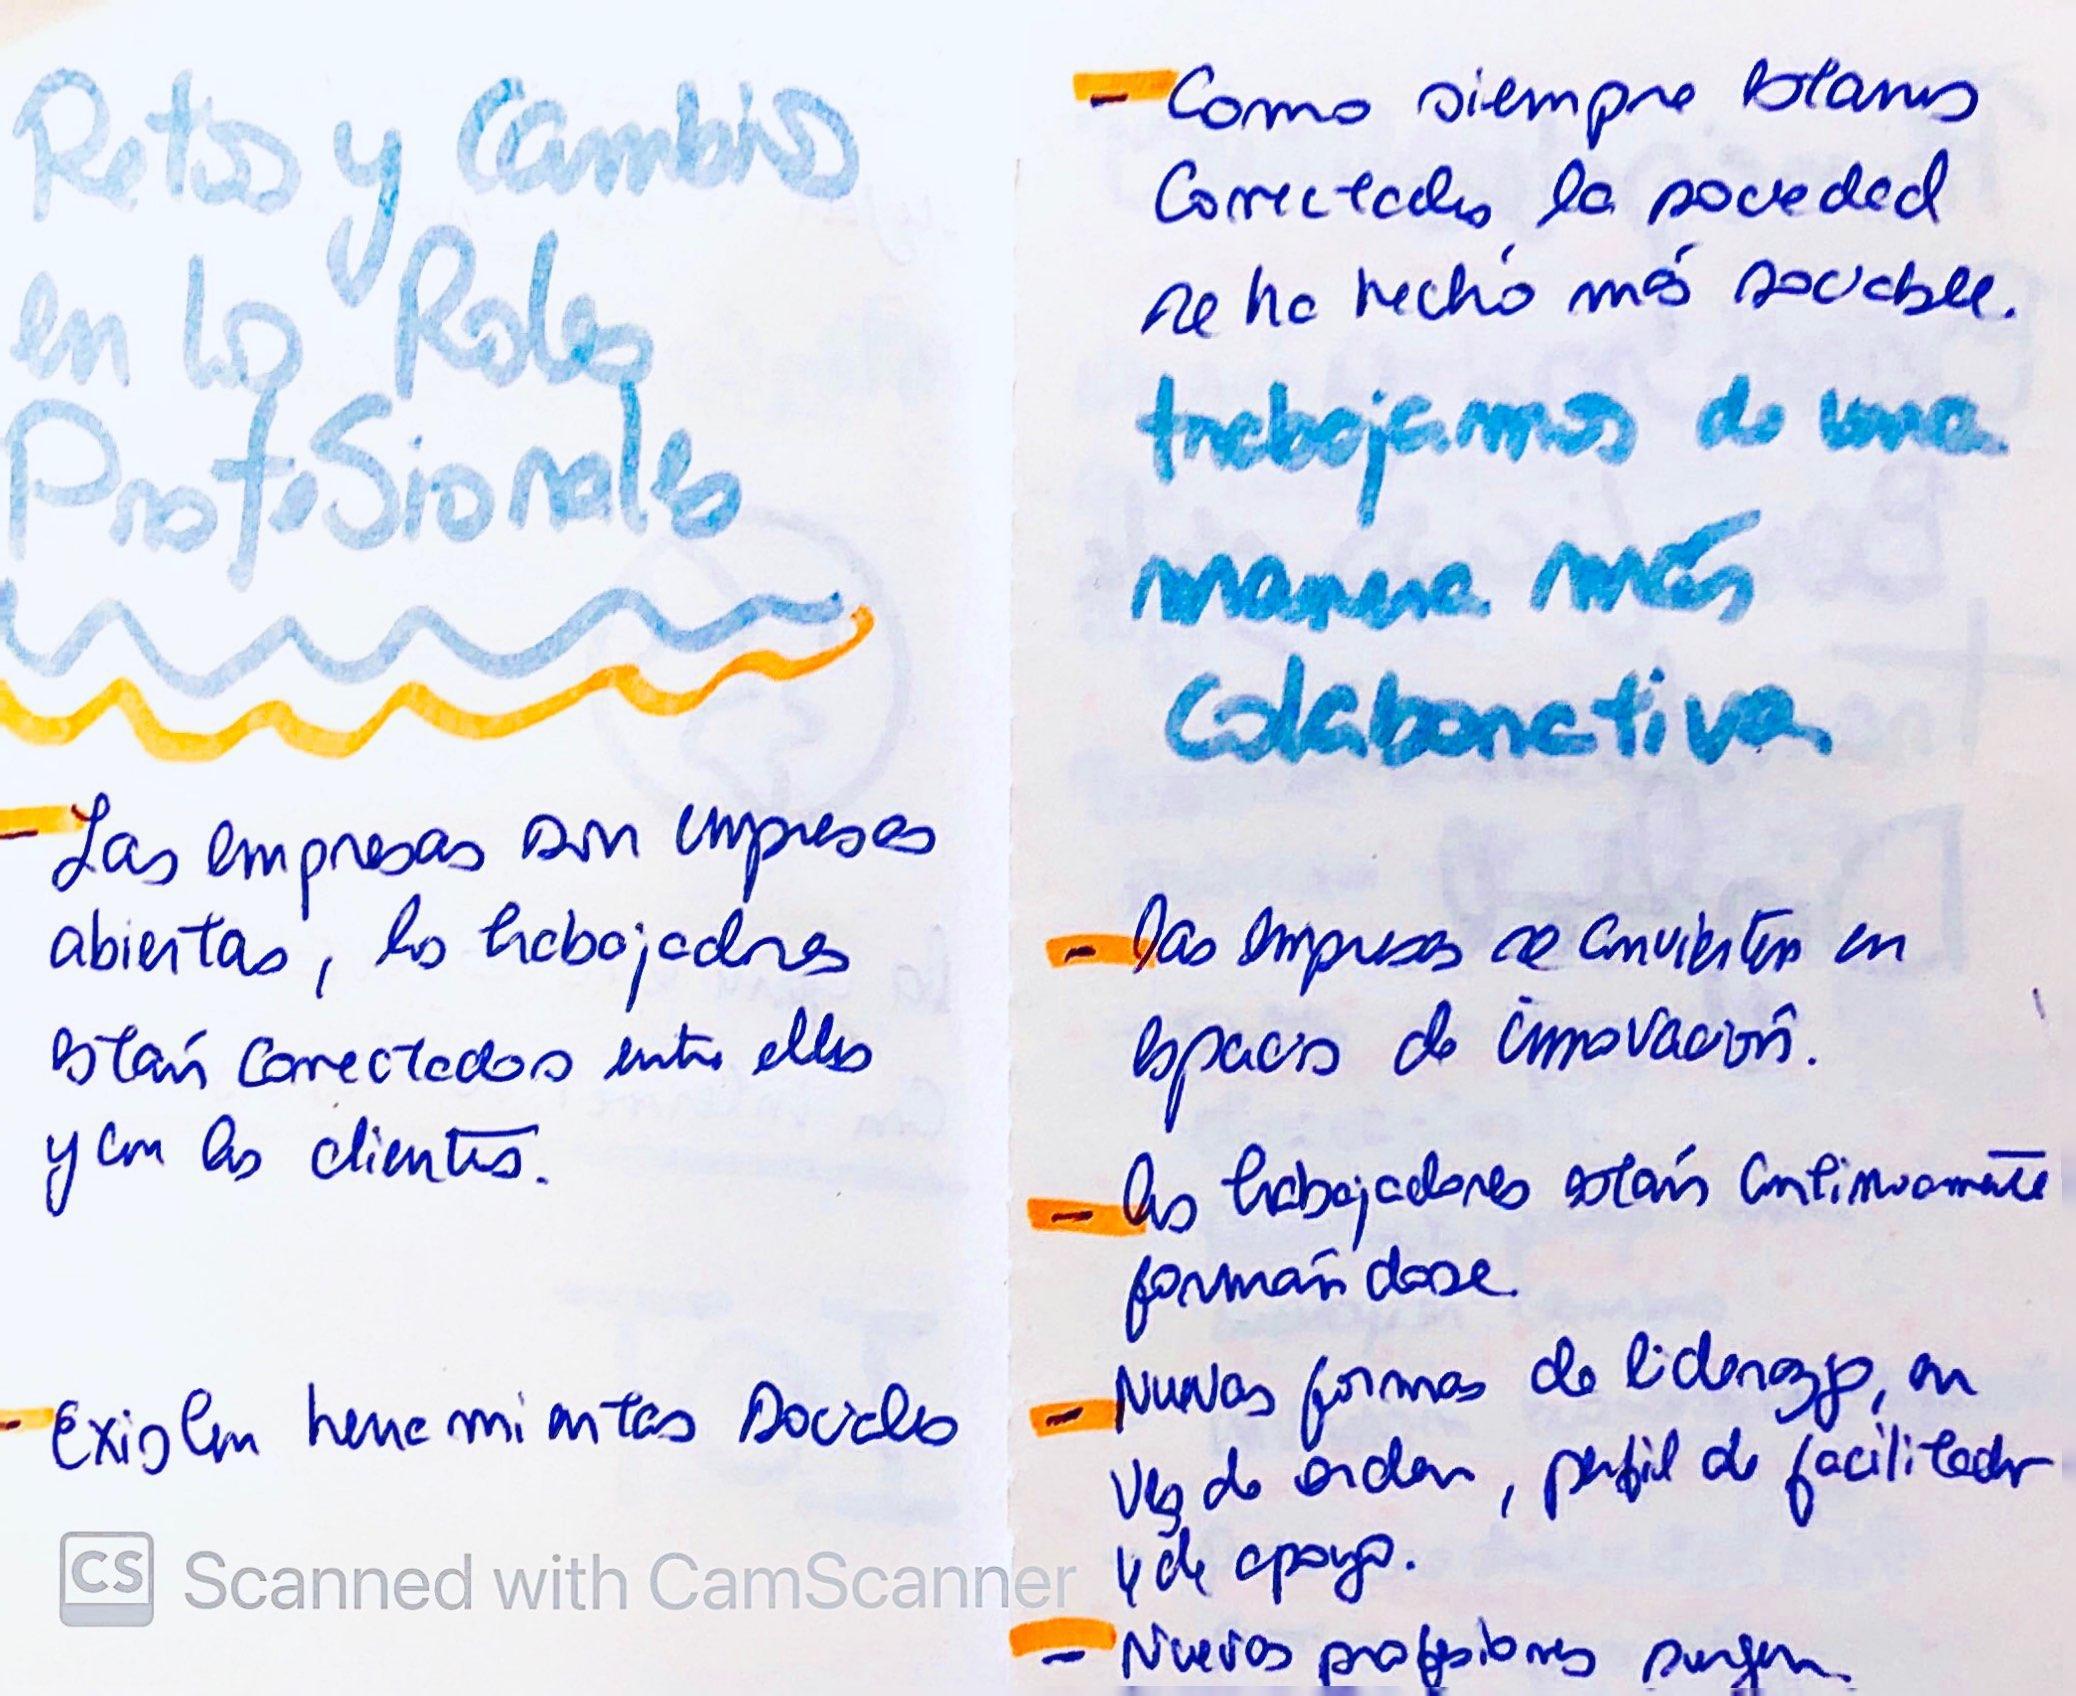 Retos y Cambios
en Lo Roles
Profesionales
- Las empresas son empresas
abiertas, los trabajadores
están conectados entre ellos
y con los clientes.
- Existen herramientas sociales
- Como siempre estamos
Conectados la sociedad
se ha hechó más sociable.
trabajamos de una
manera más
Colaborativa.
- las empresas se convierten en
espacios de innovación.
- los trabajadores están continuamente
formándose.
- Nuevas formas de liderazgo, en
vez de orden, perfil de facilitador
y de apoyo.
- Nuevas profesiones surgen.
CS Scanned with CamScanner